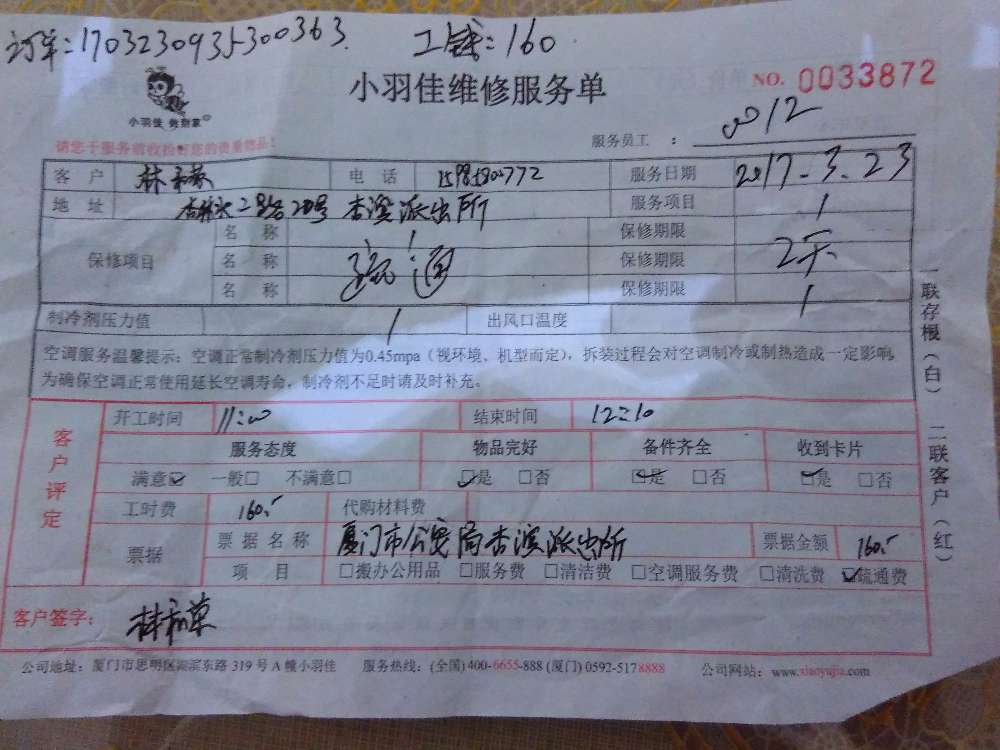 订单:1703230935300363 工钱:160
小羽佳维修服务单
NO. 0033872
小羽佳
请您于服务前收拾好您的贵重物品!
服务员工 : 8012
客户 电话 服务日期 2017.3.23
地址 杏滨派出所 服务项目
名称 保修期限
保修项目 名称 疏通 保修期限 2天
名称 保修期限
制冷剂压力值 出风口温度
空调服务温馨提示:空调正常制冷剂压力值为0.45mpa(视环境、机型而定),拆装过程会对空调制冷或制热造成一定影响,
为确保空调正常使用延长空调寿命,制冷剂不足时请及时补充。
客户评定
开工时间 11:00 结束时间 12:10
服务态度 物品完好 备件齐全 收到卡片
满意☑ 一般□ 不满意□ ☑是 □否 ☑是 □否 ☑是 □否
工时费 160.- 代购材料费
票据 票据名称 厦门市公安局杏滨派出所 票据金额 160.-
项目 □搬办公用品 □服务费 □清洁费 □空调服务费 □清洗费 ☑疏通费
客户签字:
公司地址:厦门市思明区湖滨东路 319 号 A 幢小羽佳 服务热线:(全国)400-6655-888 (厦门) 0592-5178888 公司网站:www.xiaoyujia.com
一联存根(白) 二联客户(红)